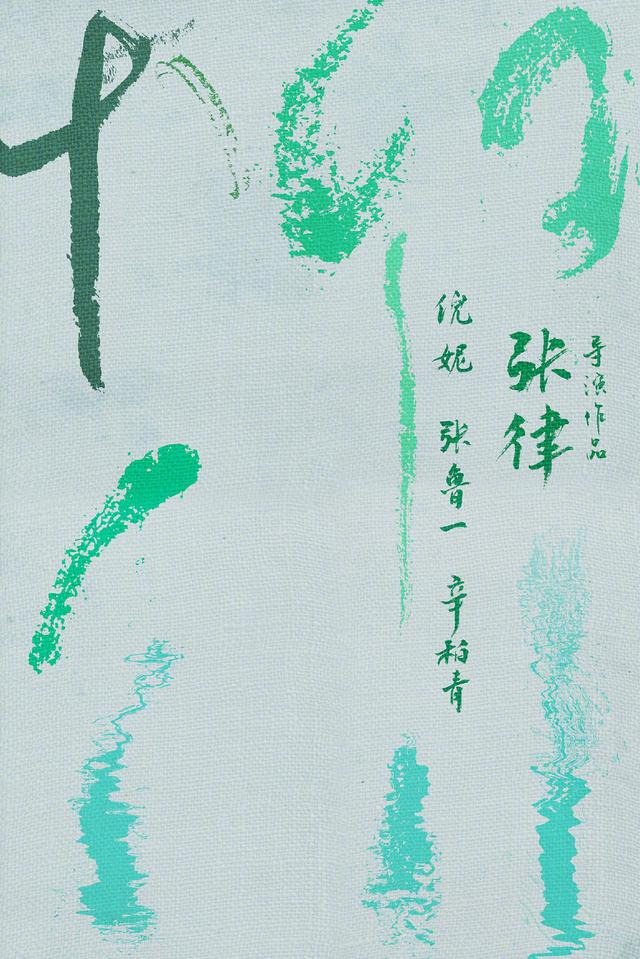 柳川
导演作品
张律
倪妮 张鲁一 辛柏青